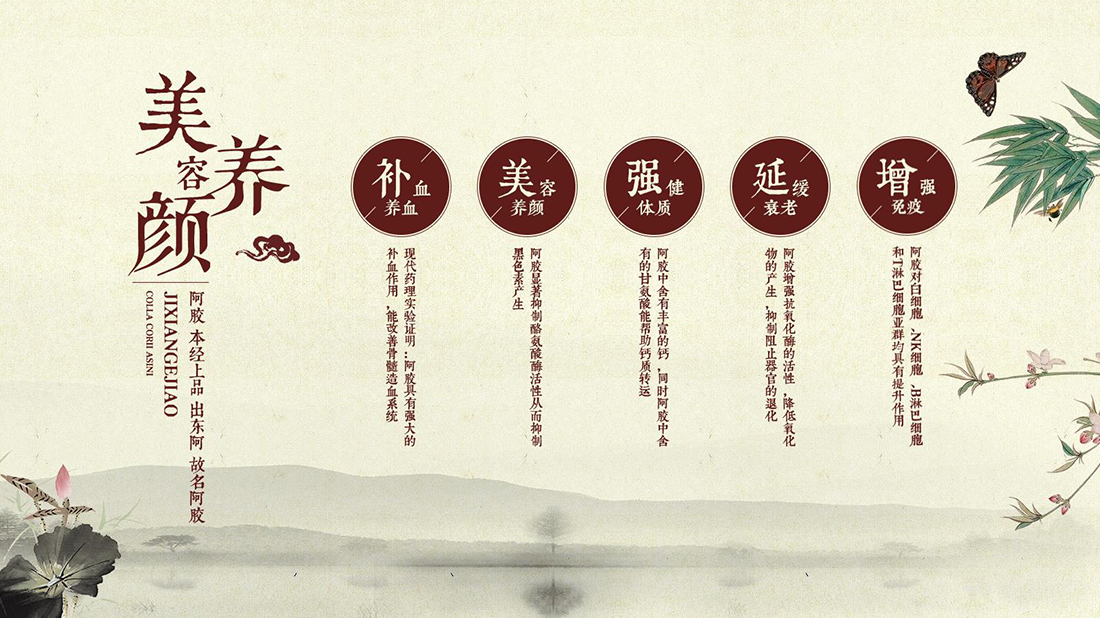 美容养颜
阿胶 本经上品 出东阿 故名阿胶
JIXIANGEJIAO
COLLA CORII ASINI
补血
养血
现代药理实验证明：阿胶具有强大的
补血作用，能改善骨髓造血系统
美容
养颜
阿胶显著抑制酪氨酸酶活性从而抑制
黑色素产生
强健
体质
阿胶中含有丰富的钙，同时阿胶中含
有的甘氨酸能帮助钙质转运
延缓
衰老
阿胶增强抗氧化酶的活性，降低氧化
物的产生，抑制阻止器官的退化
增强
免疫
阿胶对白细胞、NK细胞、B淋巴细胞
和T淋巴细胞亚群均具有提升作用